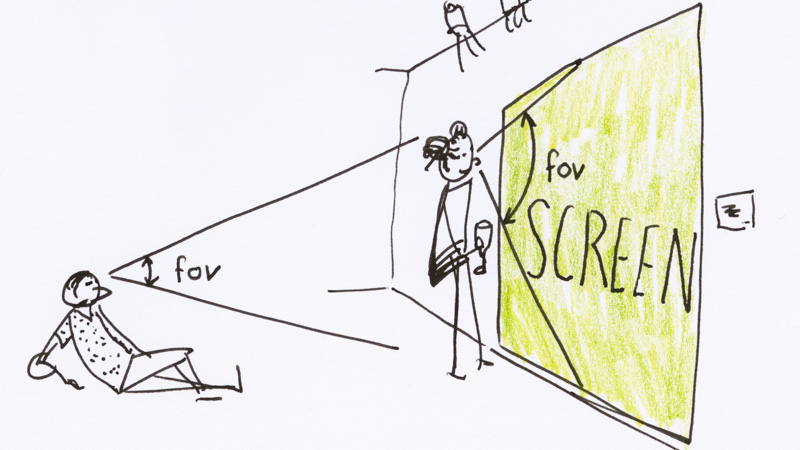 fov
fov
SCREEN